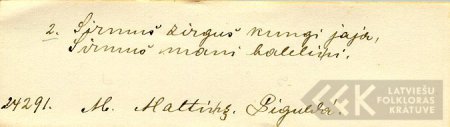 2. Sirmuš zirguš kungi jāja,
Sirmuš mani bāleliņi.
24291. M. Maltiņš. Siguldā.
LATVIEŠU
FOLKLORAS
KRĀTUVE